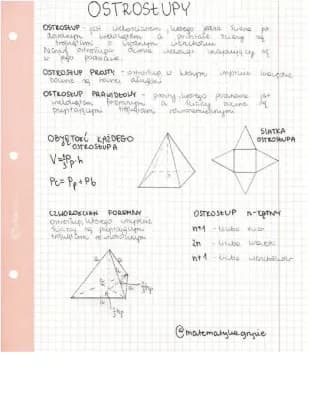 OSTROSŁUPY
OSTROSŁUP - jest wielościanem, którego jedna ściana jest
dowolnym wielokątem a pozostałe ściany są
trójkątami o wspólnym wierzchołku
OSTROSŁUP PROSTY - ostrosłup, w którym wszystkie krawędzie
boczne są równej długości
OSTROSŁUP PRAWIDŁOWY - prosty, którego podstawa jest
wielokątem foremnym a ściany boczne są
przystającymi trójkątami równoramiennymi
OBJĘTOŚĆ KAŻDEGO
OSTROSŁUPA
SIATKA
OSTROSŁUPA
Pc = Pp + Pb
CZWOROŚCIAN FOREMNY
ostrosłup, którego wszystkie
ściany są przystającymi
trójkątami równobocznymi
OSTROSŁUP n-KĄTNY
n+1 - liczba ścian
2n - liczba krawędzi
n+1 - liczba wierzchołków
@matematykawgryzie